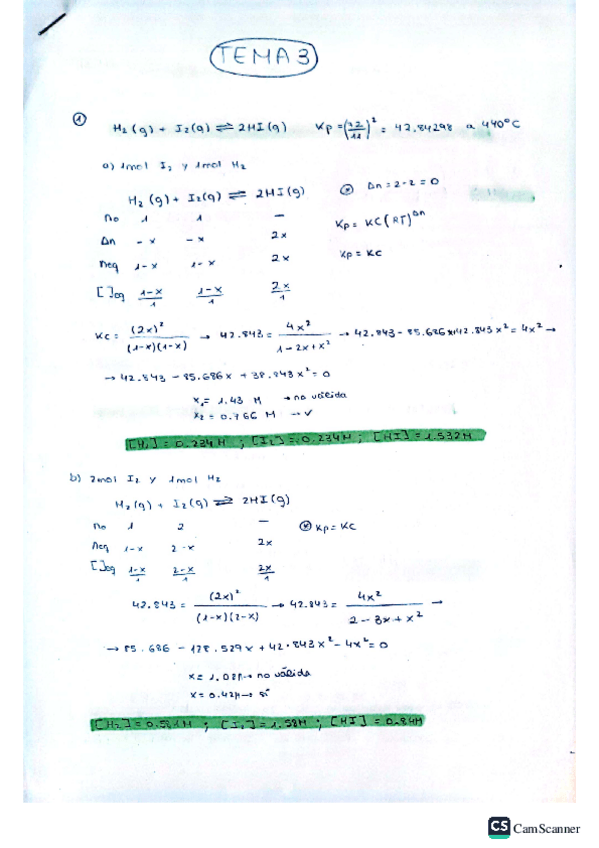 TEMA 3
① H₂(g) + I₂(g) ⇌ 2HI(g) Kp = (72/11)² = 42.84298 a 440°C
a) 1mol I₂ y 1mol H₂
H₂(g) + I₂(g) ⇌ 2HI(g) ⊛ Δn = 2-2 = 0
no 1 1 —
Δn -x -x 2x Kp = KC(RT)^Δn
neq 1-x 1-x 2x Kp = KC
[ ]eq 1-x/1 1-x/1 2x/1
Kc = (2x)²/(1-x)(1-x) → 42.843 = 4x²/1-2x+x² → 42.843 - 85.686x+42.843x² = 4x² →
→ 42.843 - 85.686x + 38.843x² = 0
x₁ = 1.43 M → no válida
x₂ = 0.766 M → ✓
[H₂] = 0.234M ; [I₂] = 0.234M ; [HI] = 1.532M
b) 2mol I₂ y 1mol H₂
H₂(g) + I₂(g) ⇌ 2HI(g)
no 1 2 — ⊛ Kp = KC
neq 1-x 2-x 2x
[ ]eq 1-x/1 2-x/1 2x/1
42.843 = (2x)²/(1-x)(2-x) → 42.843 = 4x²/2-3x+x² →
→ 85.686 - 128.529x + 42.843x² - 4x² = 0
x = → no válida
x = 0.42M → sí
[H₂] = 0.581M ; [I₂] = 1.58M ; [HI] = 0.84M
CS CamScanner